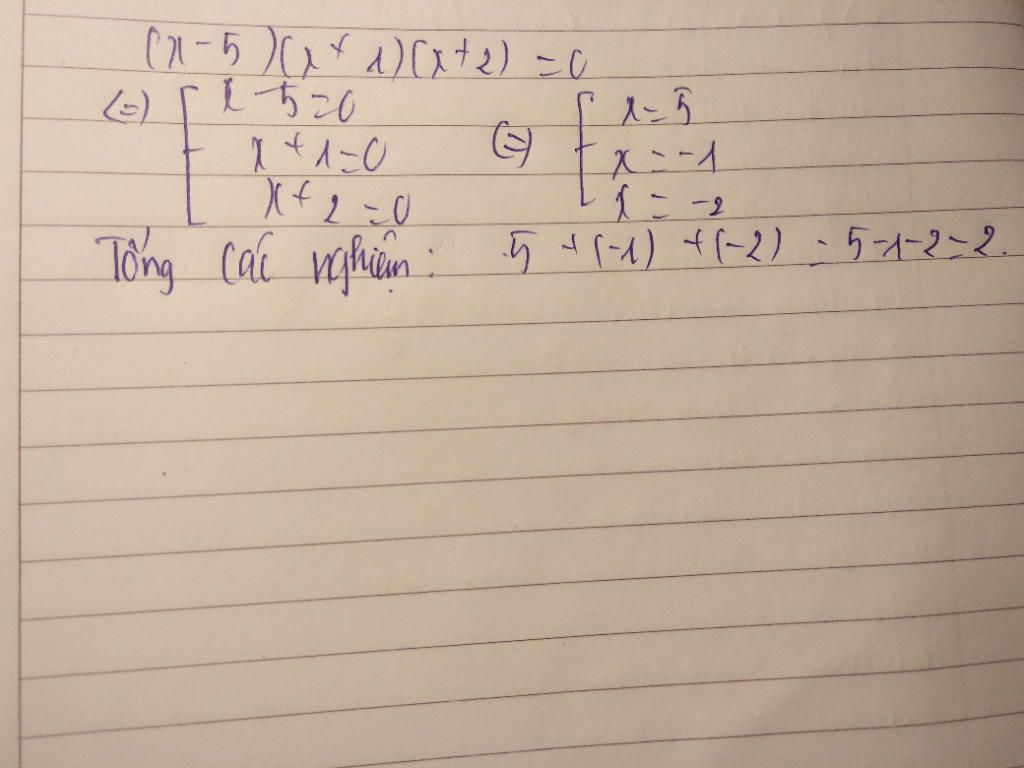 (x-5)(x+1)(x+2) = 0
(=) [ x-5=0 (=) [ x=5
x+1=0 x=-1
x+2=0 x=-2
Tổng các nghiệm: 5 + (-1) + (-2) = 5-1-2=2.